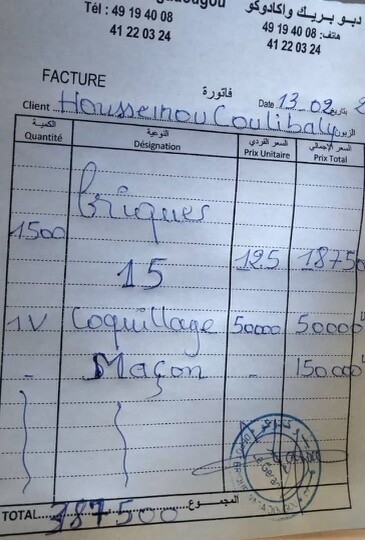 دبو بريك واكادوكو
Tél : 49 19 40 08
41 22 03 24
هاتف: 08 40 19 49
41 22 03 24
FACTURE
فاتورة
Date 13-02 بتاريخ
Client Housseinou Coulibaly الزبون
الكمية
Quantité
النوعية
Désignation
السعر الفردي
Prix Unitaire
السعر الإجمالي
Prix Total
Briques
1500 125 18750
15
1V Coquillage 50000 50000
- Maçon - 150.000
TOTAL 387500 المجموع